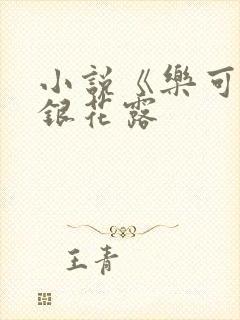 小說《樂可
銀花露
王青